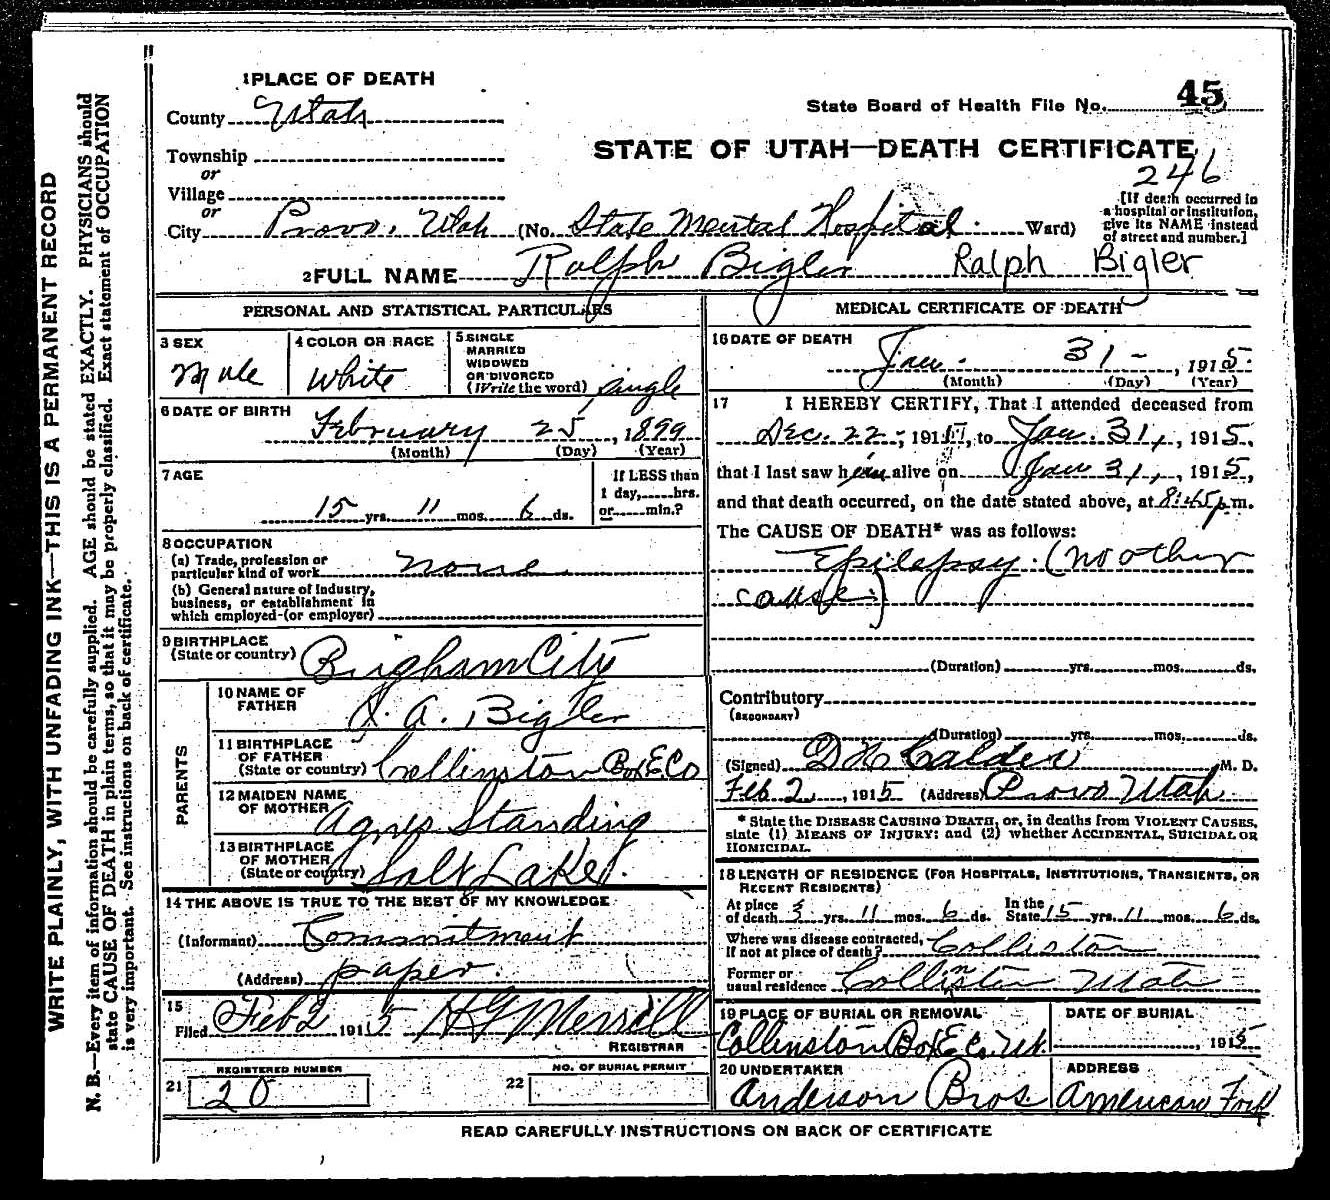 WRITE PLAINLY, WITH UNFADING INK—THIS IS A PERMANENT RECORD
N. B.—Every item of information should be carefully supplied. AGE should be stated EXACTLY. PHYSICIANS should
state CAUSE OF DEATH in plain terms, so that it may be properly classified. Exact statement of OCCUPATION
is very important. See instructions on back of certificate.
1 PLACE OF DEATH
County Utah
State Board of Health File No. 45
Township
or
STATE OF UTAH—DEATH CERTIFICATE
246
Village
or
City Provo, Utah (No. State Mental Hospital Ward)
[If death occurred in
a hospital or institution,
give its NAME instead
of street and number.]
2 FULL NAME Ralph Bigler Ralph Bigler
PERSONAL AND STATISTICAL PARTICULARS
3 SEX
Male
4 COLOR OR RACE
White
5 SINGLE
MARRIED
WIDOWED
OR DIVORCED
(Write the word) single
6 DATE OF BIRTH
February 25, 1899
(Month) (Day) (Year)
7 AGE
15 yrs. 11 mos. 6 ds.
If LESS than
1 day, hrs.
or min.?
8 OCCUPATION
(a) Trade, profession or
particular kind of work none
(b) General nature of Industry,
business, or establishment in
which employed (or employer)
9 BIRTHPLACE
(State or country) Brigham City
PARENTS
10 NAME OF
FATHER J. A. Bigler
11 BIRTHPLACE
OF FATHER
(State or country) Collinston Box E Co
12 MAIDEN NAME
OF MOTHER Agnes Standing
13 BIRTHPLACE
OF MOTHER
(State or country) Salt Lake
14 THE ABOVE IS TRUE TO THE BEST OF MY KNOWLEDGE
(Informant) Commitment
(Address) paper.
15
Filed Feb 2 1915 H G Merrill
REGISTRAR
REGISTERED NUMBER
21 20
NO. OF BURIAL PERMIT
22
MEDICAL CERTIFICATE OF DEATH
16 DATE OF DEATH
Jan. 31 - , 1915.
(Month) (Day) (Year)
17 I HEREBY CERTIFY, That I attended deceased from
Dec. 22, 191 , to Jan. 31, , 1915,
that I last saw him alive on Jan 31, , 1915,
and that death occurred, on the date stated above, at 8:45 p.m.
The CAUSE OF DEATH* was as follows:
Epilepsy. (No other
cause.)
(Duration) yrs. mos. ds.
Contributory
(SECONDARY)
(Duration) yrs. mos. ds.
(Signed) D H Calder M. D.
Feb 2 , 1915 (Address) Provo Utah.
* State the DISEASE CAUSING DEATH, or, in deaths from VIOLENT CAUSES,
state (1) MEANS OF INJURY; and (2) whether ACCIDENTAL, SUICIDAL OR
HOMICIDAL.
18 LENGTH OF RESIDENCE (FOR HOSPITALS, INSTITUTIONS, TRANSIENTS, OR
RECENT RESIDENTS)
At place
of death yrs. 11 mos. 6 ds.
In the
State 15 yrs. 11 mos. 6 ds.
Where was disease contracted,
If not at place of death? Colliston
Former or
usual residence Collinston Utah
19 PLACE OF BURIAL OR REMOVAL
Collinston Box E Co. Ut.
DATE OF BURIAL
, 1915
20 UNDERTAKER
Anderson Bros.
ADDRESS
American Fork
READ CAREFULLY INSTRUCTIONS ON BACK OF CERTIFICATE